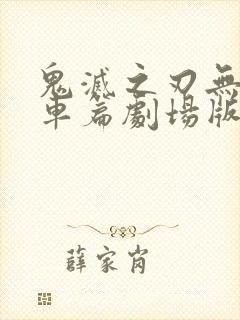 鬼滅之刃無
車篇劇場版
薛家肖